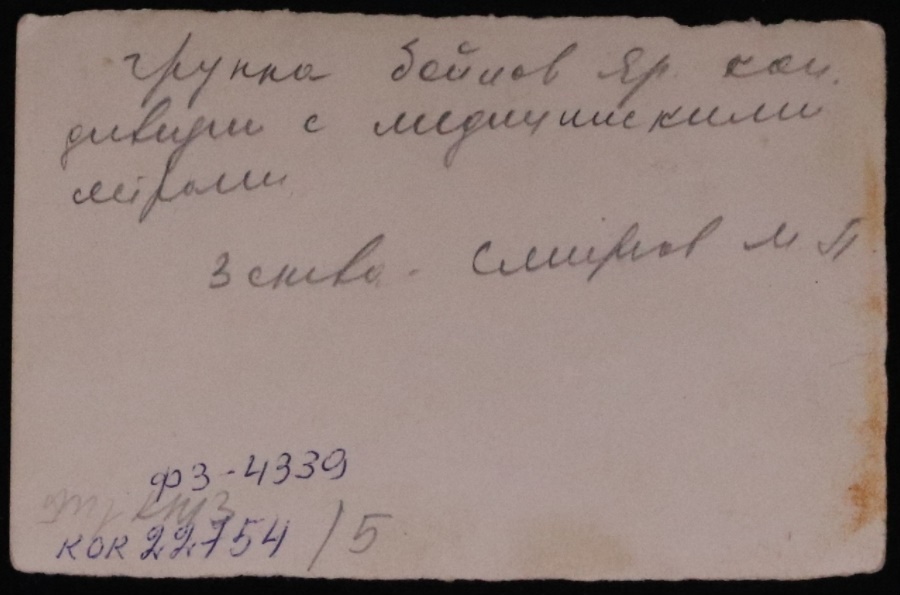 группа бойцов Яр. ком.
дивизии с медицинскими
сестрами
3 слева - Смирнов М П.
ФЗ-4339
КОК 22754 /5